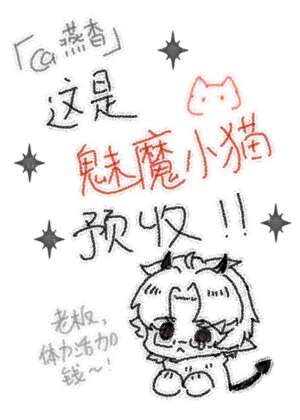 「@燕杳」
这是
魅魔小猫
预收!!
老板,
体力活加
钱~!